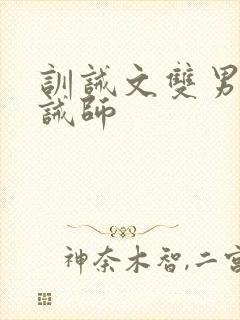 訓誡文雙男
誡師
神奈木智,二宮